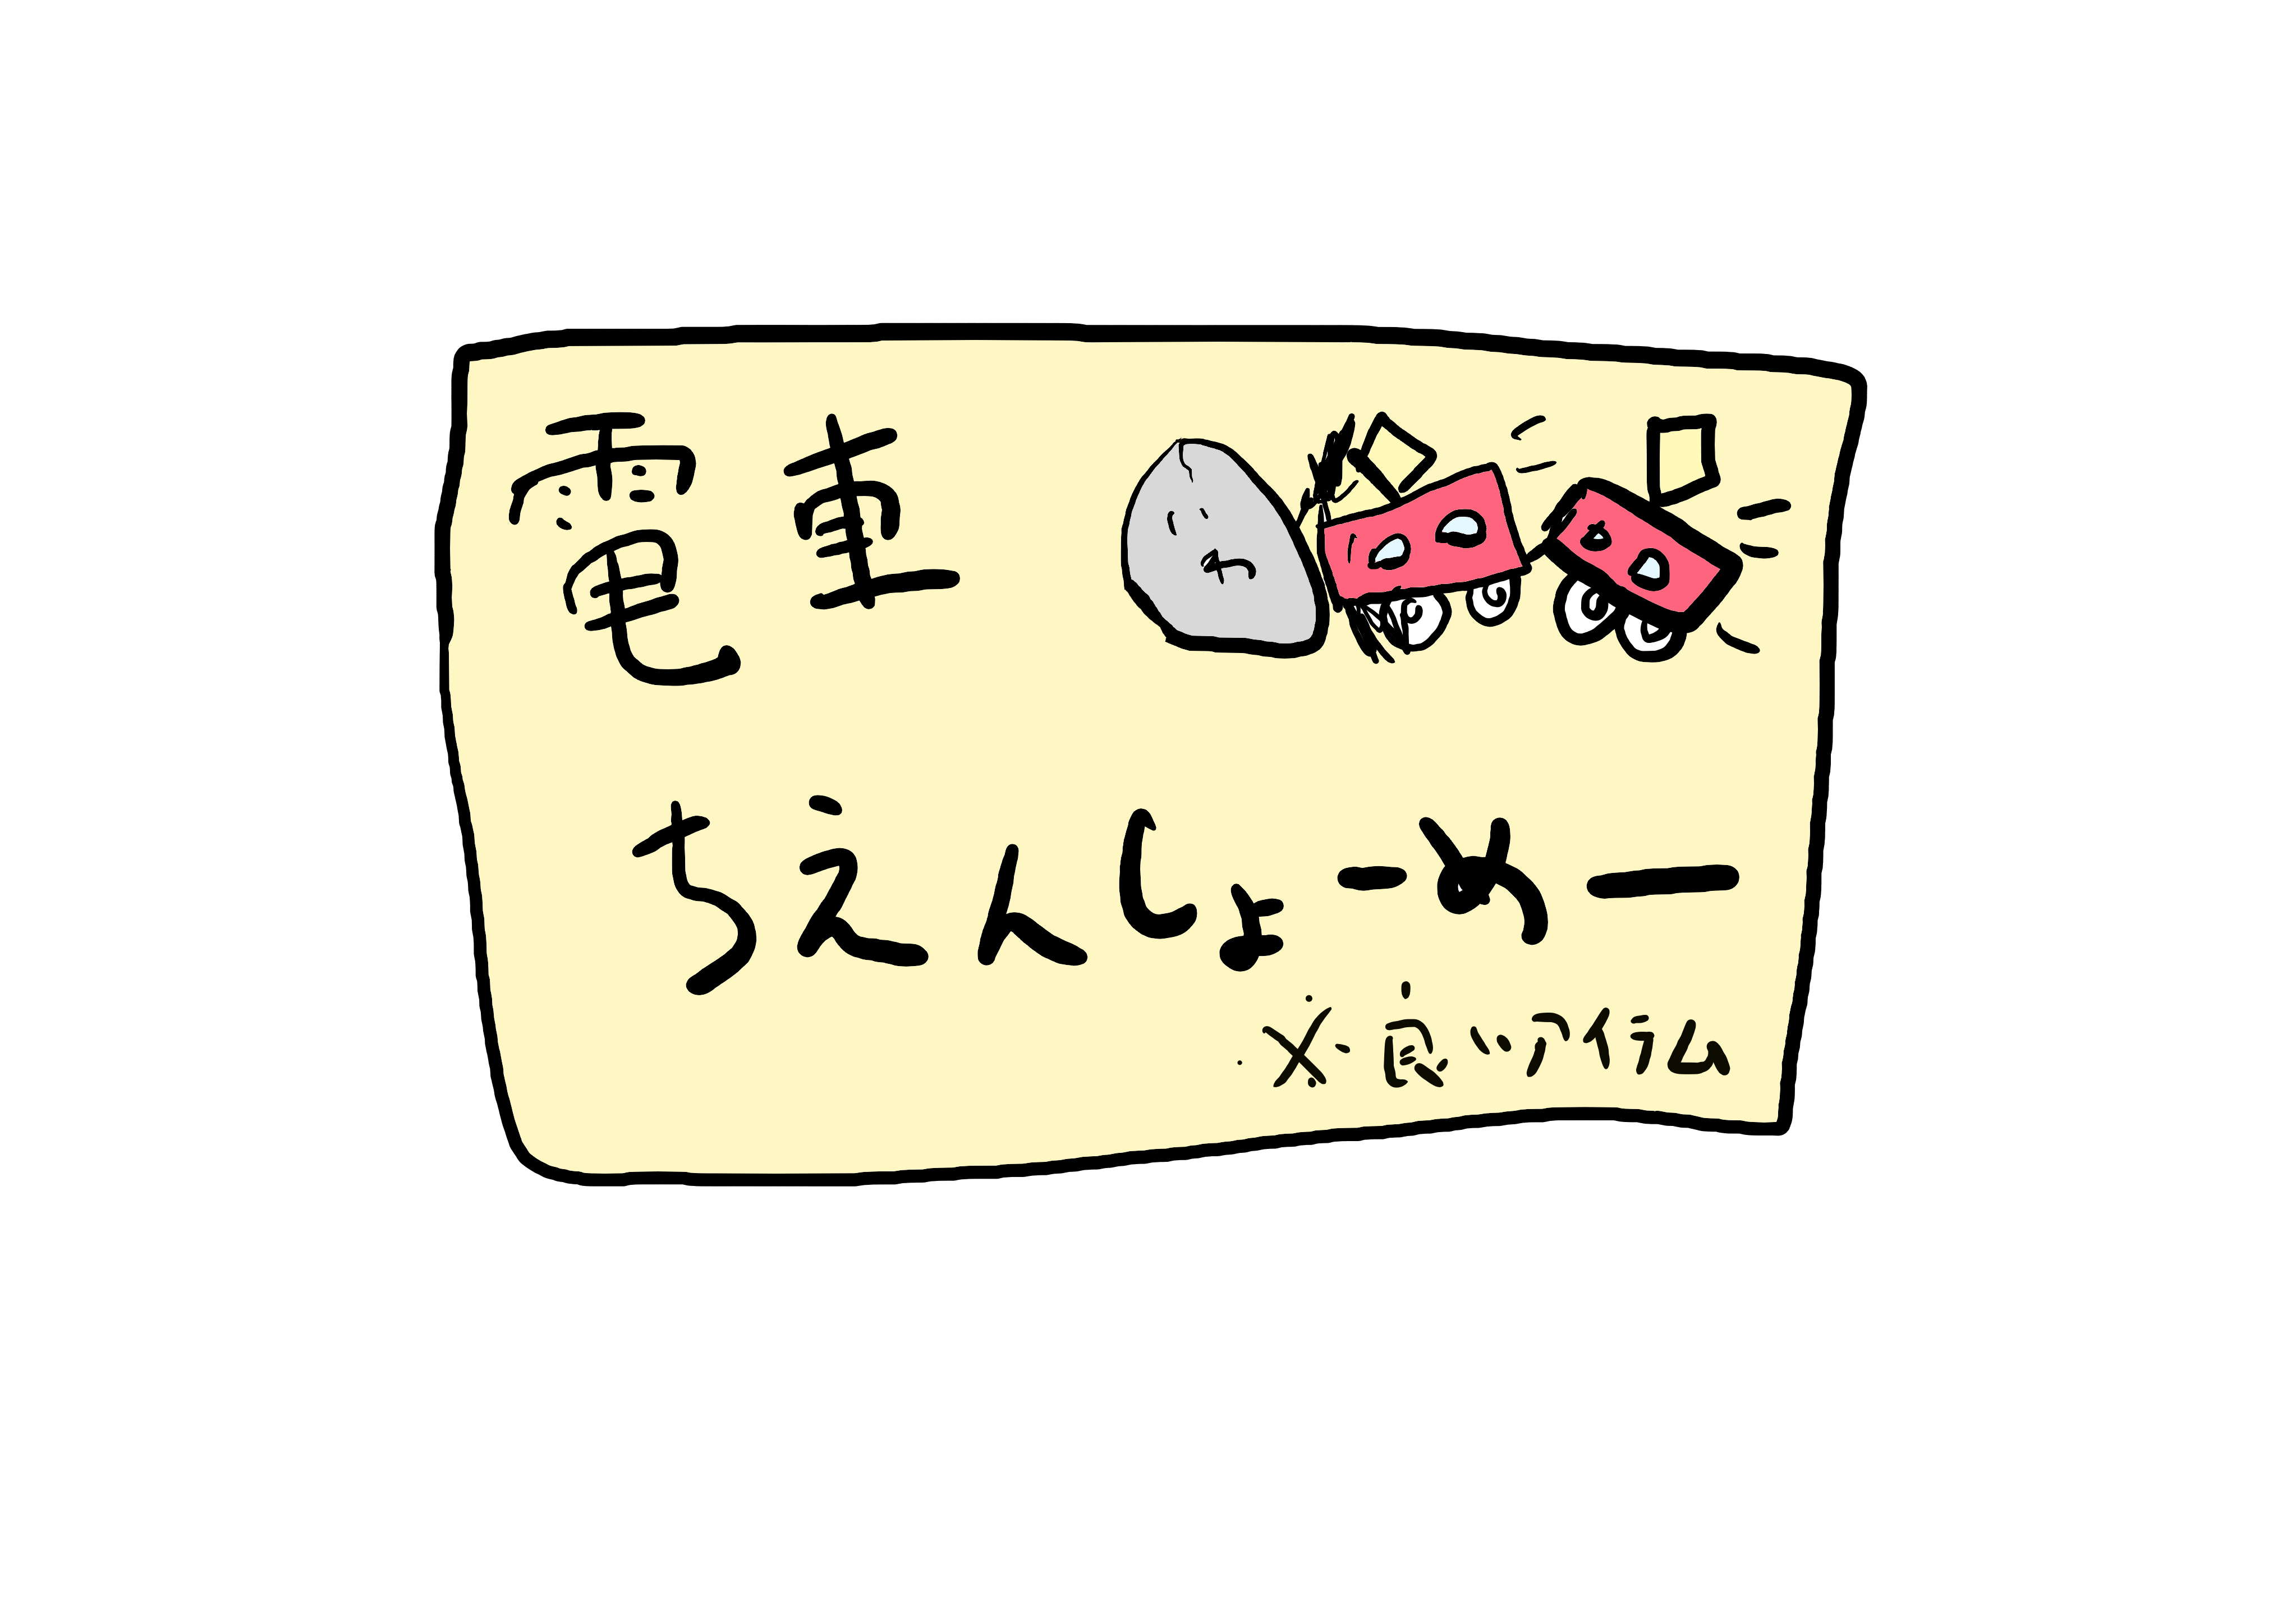 電車
ちえんしょーめー
※良いアイテム